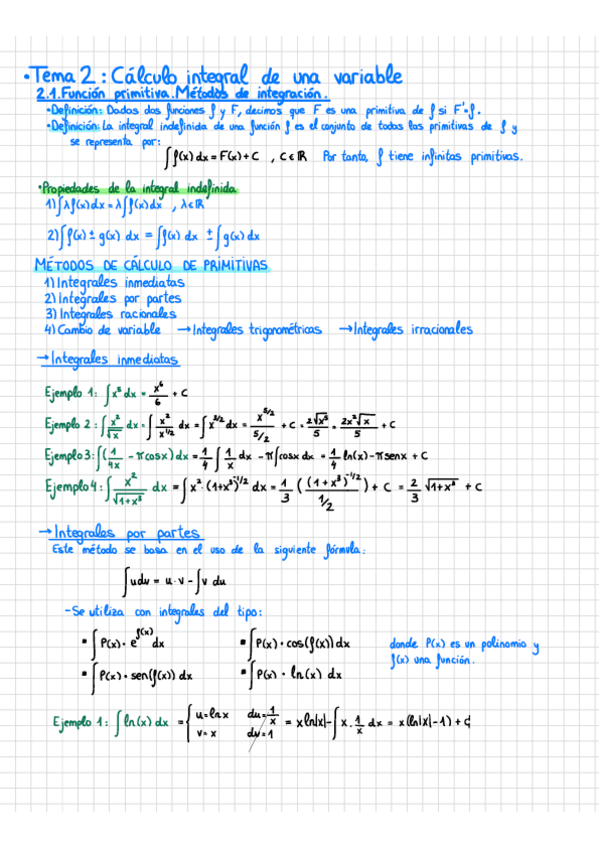 ·Tema 2: Cálculo integral de una variable
2.1. Función primitiva. Métodos de integración.
·Definición: Dadas dos funciones f y F, decimos que F es una primitiva de f si F'=f.
·Definición: La integral indefinida de una función f es el conjunto de todas las primitivas de f y
se representa por:
∫f(x) dx = F(x) + C , C ∈ ℝ Por tanto, f tiene infinitas primitivas.
·Propiedades de la integral indefinida
1) ∫λf(x)dx = λ∫f(x)dx , λ∈ℝ
2) ∫f(x) ± g(x) dx = ∫f(x) dx ± ∫g(x) dx
MÉTODOS DE CÁLCULO DE PRIMITIVAS
1) Integrales inmediatas
2) Integrales por partes
3) Integrales racionales
4) Cambio de variable → Integrales trigonométricas → Integrales irracionales
→ Integrales inmediatas
Ejemplo 1: ∫x⁵ dx = x⁶/6 + C
Ejemplo 2: ∫x²/√x dx = ∫x²/x^(1/2) dx = ∫x^(3/2) dx = x^(5/2)/(5/2) + C = 2√x⁵/5 = 2x²√x/5 + C
Ejemplo 3: ∫(1/4x - πcosx) dx = 1/4 ∫1/x dx - π∫cosx dx = 1/4 ln(x) - πsenx + C
Ejemplo 4: ∫x²/√(1+x³) dx = ∫x²·(1+x³)^(-1/2) dx = 1/3 ((1+x³)^(-1/2)/(1/2)) + C = 2/3 √(1+x³) + C
→ Integrales por partes
Este método se basa en el uso de la siguiente fórmula:
∫udv = u·v - ∫v du
- Se utiliza con integrales del tipo:
▪ ∫P(x)·e^f(x) dx ▪ ∫P(x)·cos(f(x)) dx donde P(x) es un polinomio y
▪ ∫P(x)·sen(f(x)) dx ▪ ∫P(x)·ln(x) dx f(x) una función.
Ejemplo 1: ∫ln(x) dx = { u=lnx du=1/x v=x dv=1 = xln|x| - ∫x·1/x dx = x(ln|x|-1) + C